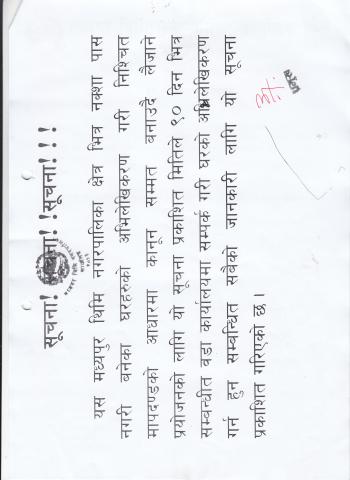 सूचना! सूचना!!सूचना!!!
यस मध्यपुर थिमि नगरपालिका क्षेत्र भित्र नक्शा पास
नगरी बनेका घरहरुको अभिलेखिकरण गरी निश्चित
मापदण्डको आधारमा कानून सम्मत बनाउदै लैजाने
प्रयोजनको लागि यो सूचना प्रकाशित मितिले ९० दिन भित्र
सम्बन्धीत वडा कार्यालयमा सम्पर्क गरी घरको अभिलेखिकरण
गर्न हुन सम्बन्धित सबैको जानकारी लागि यो सूचना
प्रकाशित गरिएको छ ।